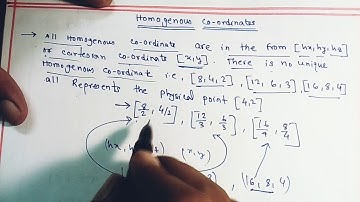 Homogenous Co-ordinates
→ All Homogenous Co-ordinate are in the from [hx, hy, h]
or cartesian co-ordinats [x, y]. There is no unique
Homogenous Co-ordinat i.e., [8, 4, 2], [12, 6, 3] [16, 8, 4]
all Represents the Physical point [4, 2]
→ [8/2, 4/2], [12/3, 6/3], [16/4, 8/4]
(hx, h (x, y)
(16, 8, 4)